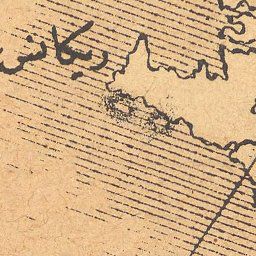 ريكانس